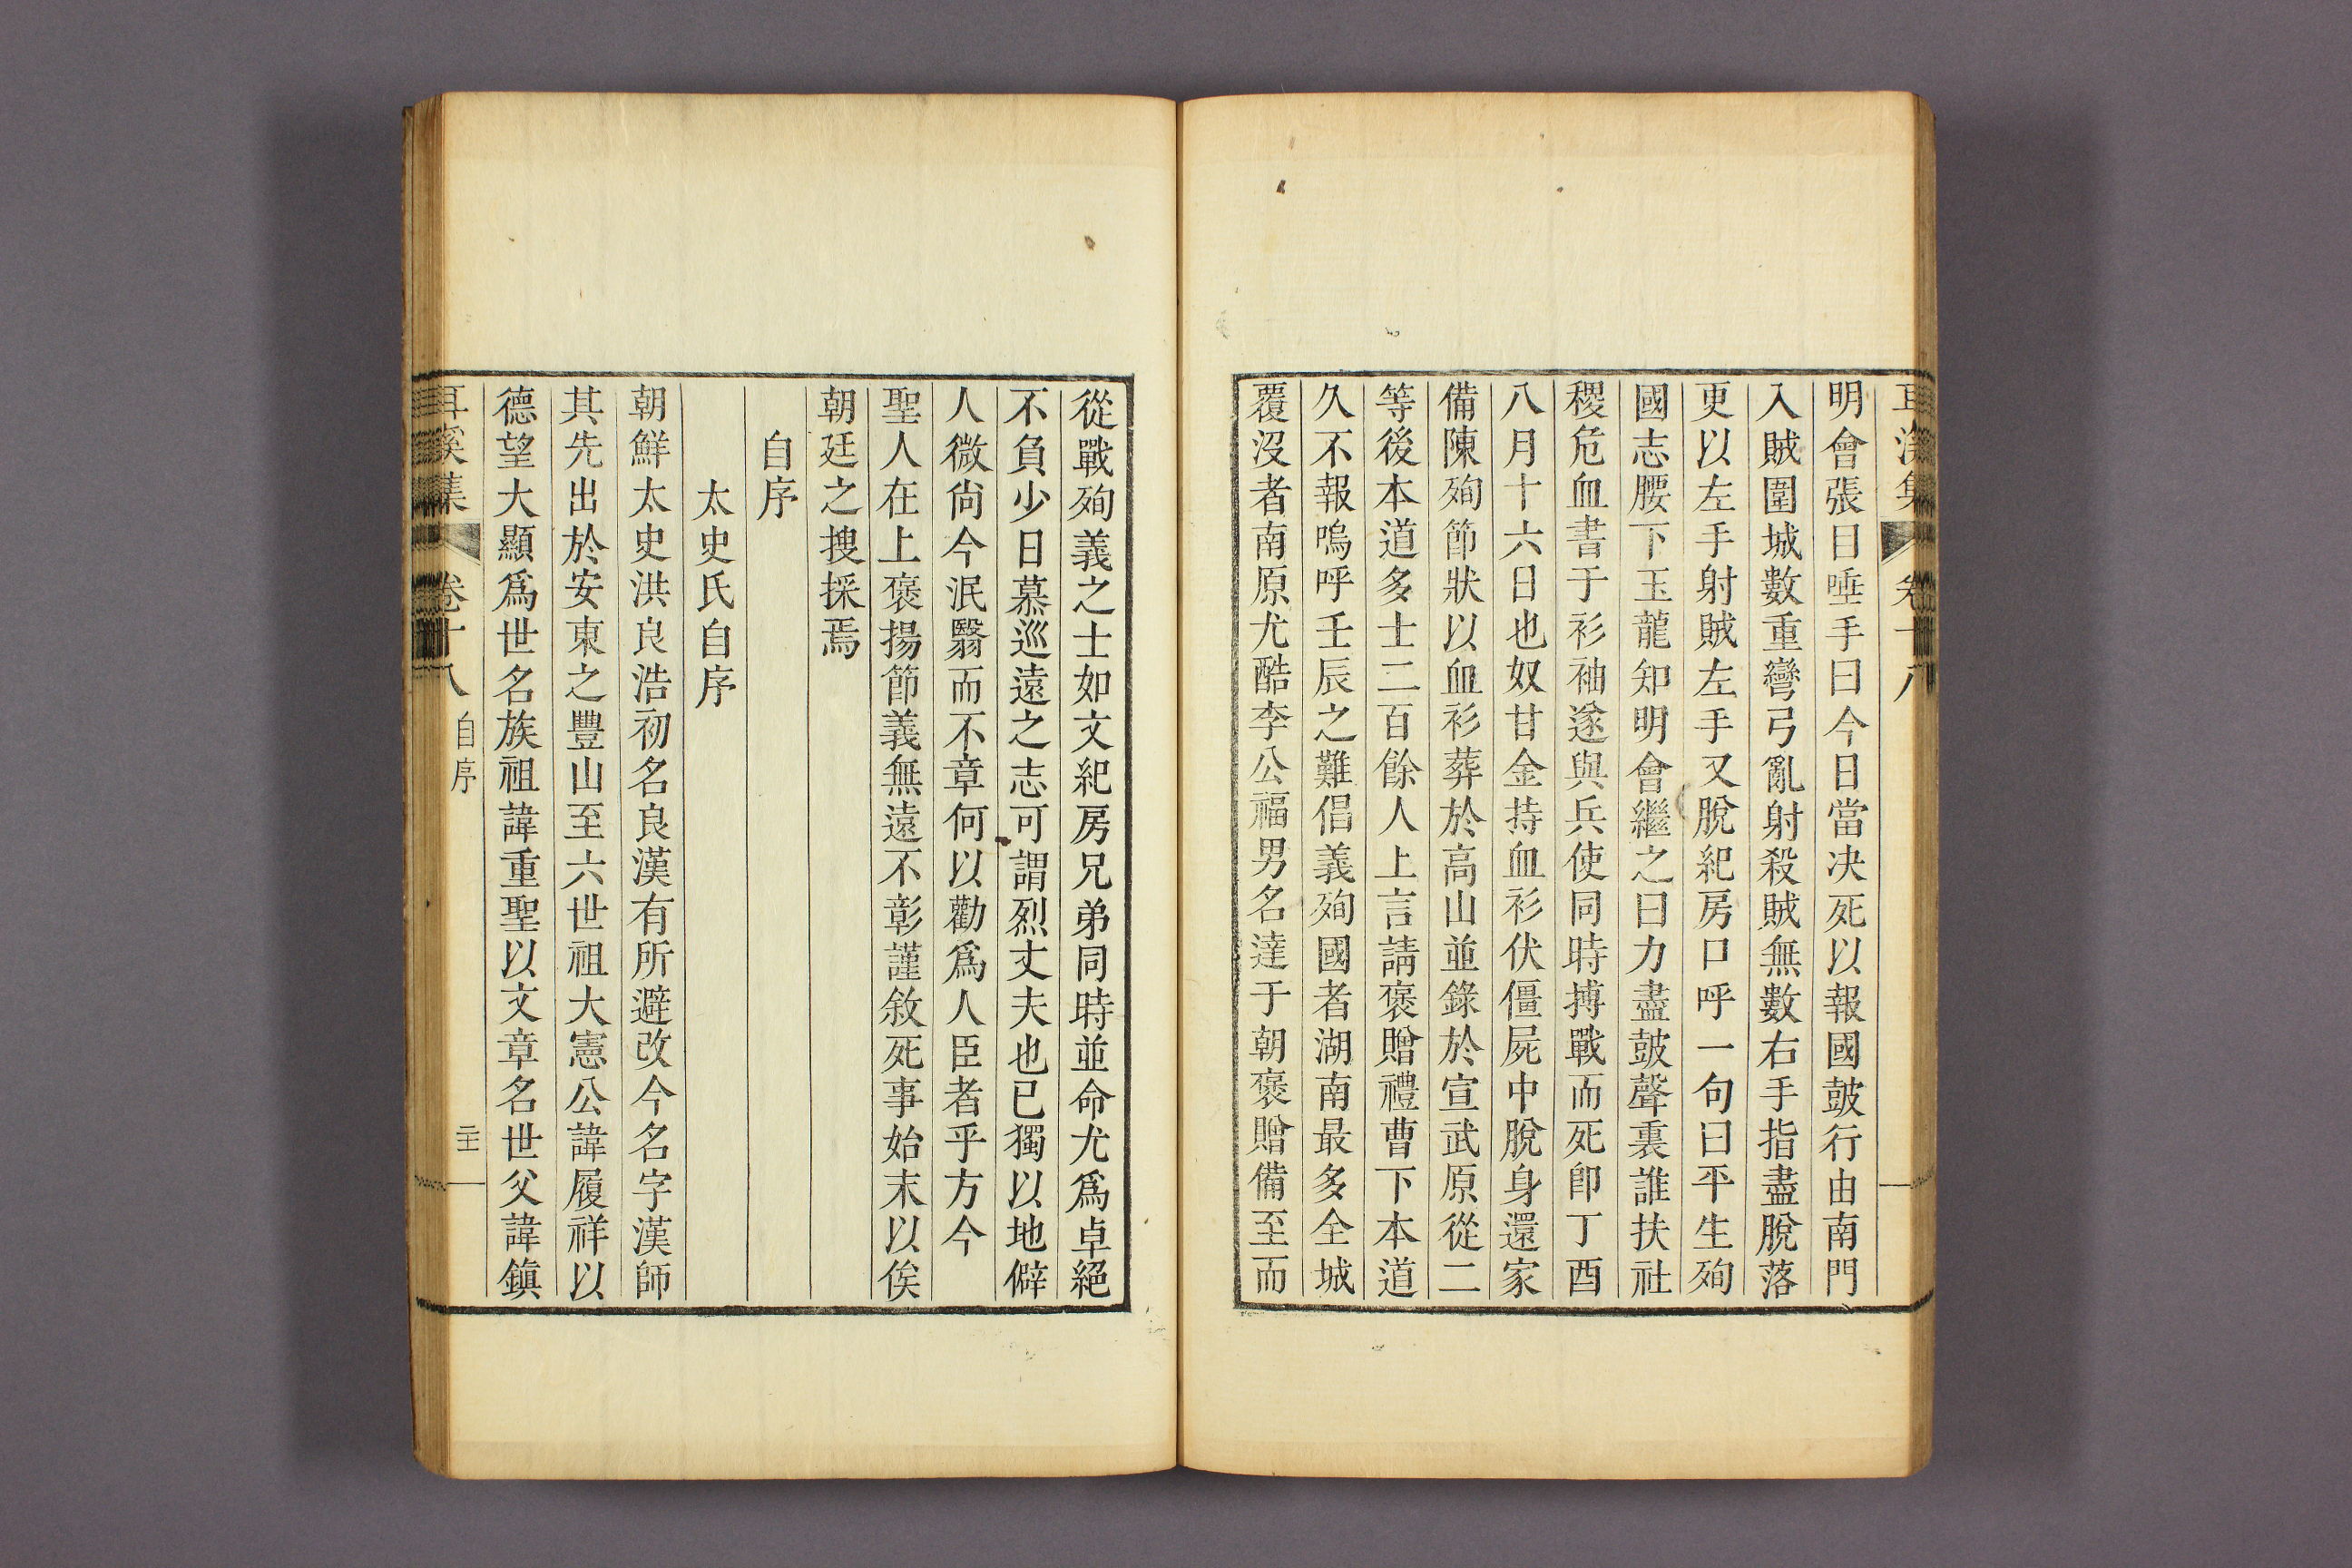 耳溪集 卷十八
明會張目唾手曰今日當决死以報國皷行由南門
入賊圍城數重彎弓亂射殺賊無數右手指盡脫落
更以左手射賊左手又脫紀房口呼一句曰平生殉
國志腰下玉龍知明會繼之曰力盡皷聲裏誰扶社
稷危血書于衫袖遂與兵使同時搏戰而死卽丁酉
八月十六日也奴甘金持血衫伏僵屍中脫身還家
備陳殉節狀以血衫葬於高山並錄於宣武原從二
等後本道多士二百餘人上言請褒贈禮曹下本道
久不報嗚呼壬辰之難倡義殉國者湖南最多全城
覆沒者南原尤酷李公福男名達于朝褒贈備至而
從戰殉義之士如文紀房兄弟同時並命尤爲卓絕
不負少日慕巡遠之志可謂烈丈夫也已獨以地僻
人微尙今泯翳而不章何以勸爲人臣者乎方今
聖人在上褒揚節義無遠不彰謹敘死事始末以俟
朝廷之搜採焉
自序
太史氏自序
朝鮮太史洪良浩初名良漢有所避改今名字漢師
其先出於安東之豐山至六世祖大憲公諱履祥以
德望大顯爲世名族祖諱重聖以文章名世父諱鎭
耳溪集 卷十八 自序 二十一